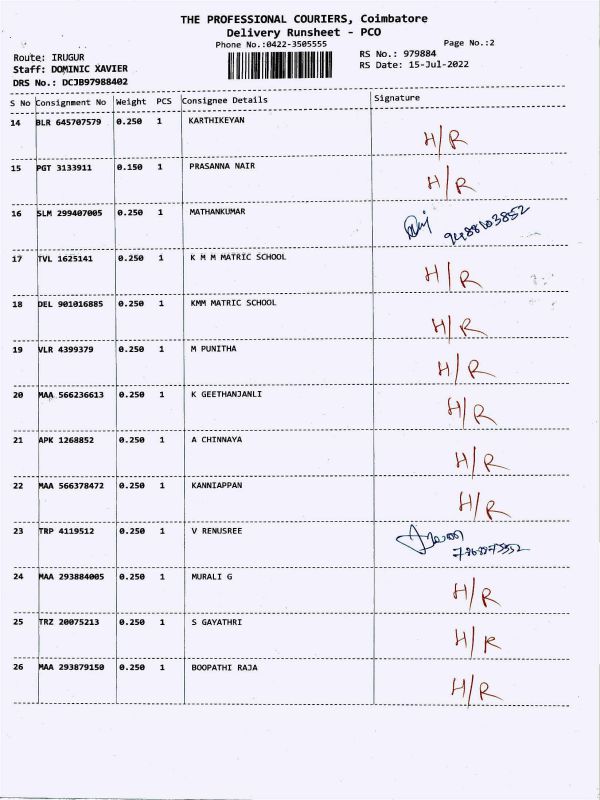 THE PROFESSIONAL COURIERS, Coimbatore
Delivery Runsheet - PCO
Phone No.:0422-3505555
Page No.:2
Route: IRUGUR
RS No.: 979884
Staff: DOMINIC XAVIER
RS Date: 15-Jul-2022
DRS No.: DCJB97988402
S No Consignment No Weight PCS Consignee Details Signature
14 BLR 645707579 0.250 1 KARTHIKEYAN
H/R
15 PGT 3133911 0.150 1 PRASANNA NAIR
H/R
16 SLM 299407005 0.250 1 MATHANKUMAR
9488103852
17 TVL 1625141 0.250 1 K M M MATRIC SCHOOL
H/R
18 DEL 901016885 0.250 1 KMM MATRIC SCHOOL
H/R
19 VLR 4399379 0.250 1 M PUNITHA
H/R
20 MAA 566236613 0.250 1 K GEETHANJANLI
H/R
21 APK 1268852 0.250 1 A CHINNAYA
H/R
22 MAA 566378472 0.250 1 KANNIAPPAN
H/R
23 TRP 4119512 0.250 1 V RENUSREE
24 MAA 293884005 0.250 1 MURALI G
H/R
25 TRZ 20075213 0.250 1 S GAYATHRI
H/R
26 MAA 293879150 0.250 1 BOOPATHI RAJA
H/R